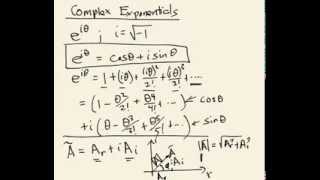 Complex Exponentials
e^{iθ} ; i = √-1
e^{iθ} = cosθ + i sinθ
e^{iθ} = 1 + (iθ) + (iθ)²/2! + (iθ)³/3! + ...
= (1 - θ²/2! + θ⁴/4! ...) cosθ
+ i (θ - θ³/3! + θ⁵/5! + ...) sinθ
Ã = A_r + i A_i
|Ã| = √A_r² + A_i²
A_i
A_r
r